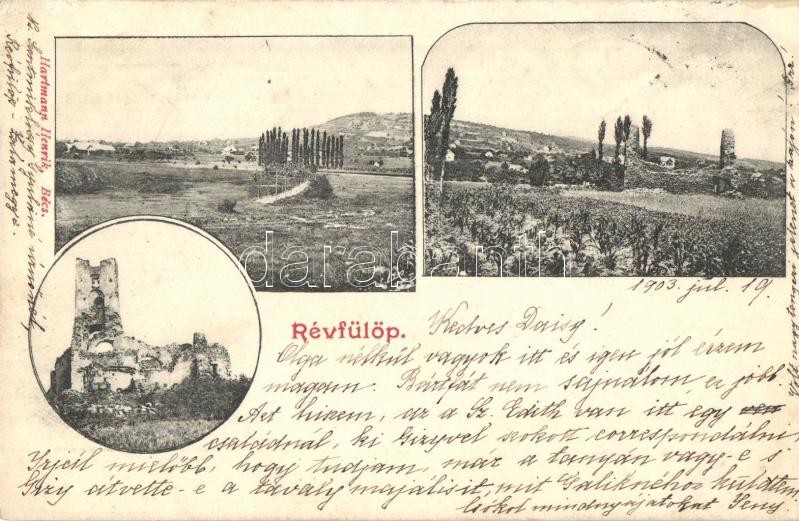 Hartmann Henrik, Bécs.
Révfülöp - Zala megye.
darabanth
1903. jul. 19.
Révfülöp.
Kedves Daisy!
Olga nélkül vagyok itt és igen jól érzem
magam. Bártfát nem sajnálom ez jobb.
Azt hiszem, az a Sz. Edith van itt egy
családnál, ki Gizyvel szokott correspondálni
Irjcíl mielőbb, hogy tudjam, már a tanyán vagy-e s
Gizy átvette-e a tavaly majálisit, mit Galiknéhoz küldtem
Csókol mindnyájatokat Jeny